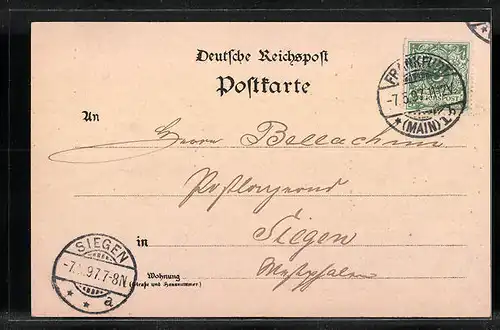 Deutsche Reichspost
Postkarte
FRANKFURT
-7.5.97.
*(MAIN)1.
An
Herrn Bellachini
Postlagernd
SIEGEN
-7. .97.7-8N
* * a
in
Siegen
Westphalen
Wohnung
(Straße und Hausnummer)